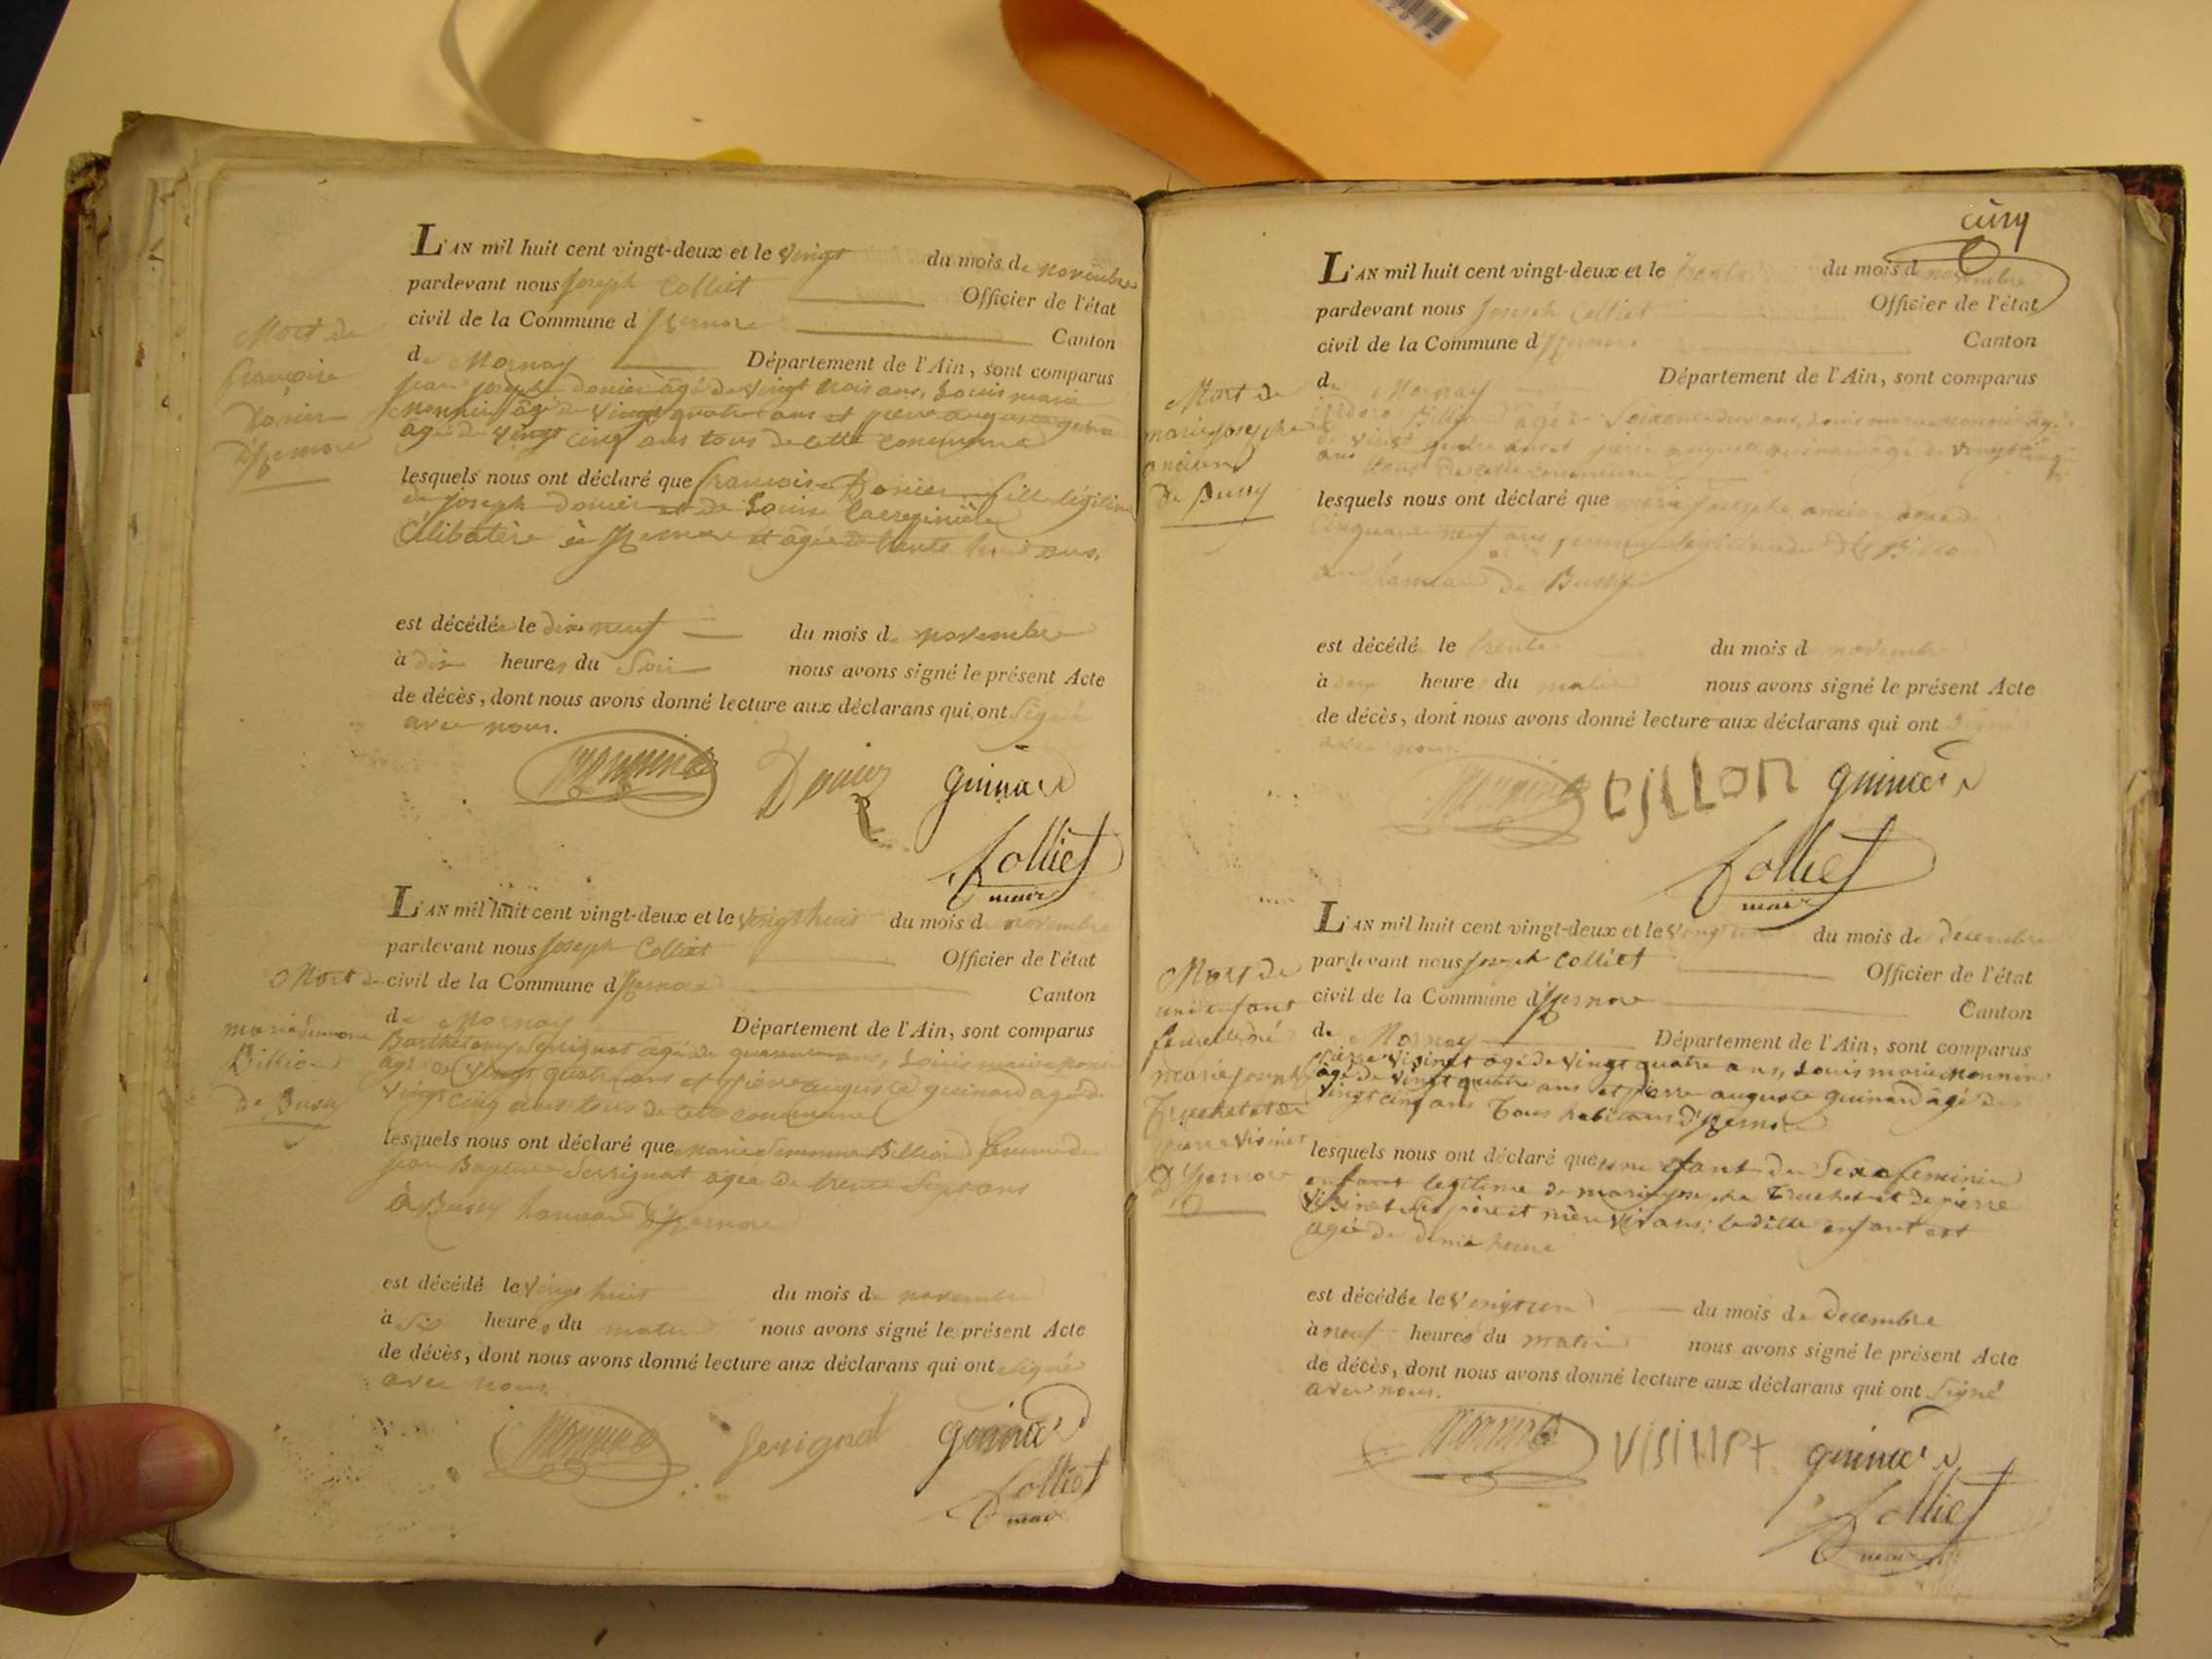 Mort de
françoise
Donier
d'Izernore
L'AN mil huit cent vingt-deux et le vingt du mois de novembre
pardevant nous joseph Colliet Officier de l'état
civil de la Commune d'Izernore Canton
de Mornay Département de l'Ain, sont comparus
jean joseph donier âgé de vingt trois ans, Louis marie
monnin âgé de vingt quatre ans et pierre auguste guinard
âgé de vingt cinq ans tous de cette commune
lesquels nous ont déclaré que françoise Donier fille légitime
de joseph donier et de Louise
Célibatère à Izernore et âgée de trente huit ans.
est décédée le dix neuf du mois de novembre
à dix heures du Soir nous avons signé le présent Acte
de décès, dont nous avons donné lecture aux déclarans qui ont Signé
avec nous.
Monnin Donier guinard
Colliet
maire
Mort de
marie
Billion
de Bussy
L'AN mil huit cent vingt-deux et le vingt huit du mois de novembre
pardevant nous joseph Colliet Officier de l'état
civil de la Commune d'Izernore Canton
de Mornay Département de l'Ain, sont comparus
Barthelemy Serrignat âgé de quarante ans, Louis marie monnin
âgé de vingt quatre ans et pierre auguste guinard âgé de
vingt cinq ans tous de cette commune
lesquels nous ont déclaré que marie Billion femme de
jean Baptiste Serrignat agée de trente Sept ans
à Bussy hameau d'Izernore
est décédé le vingt huit du mois de novembre
à Six heures du matin nous avons signé le présent Acte
de décès, dont nous avons donné lecture aux déclarans qui ont signé
avec nous.
Monnin Serignat guinard
Colliet
maire
cinq
Mort de
marie josephe
ancian
de Bussy
L'AN mil huit cent vingt-deux et le trente du mois de novembre
pardevant nous Joseph Colliet Officier de l'état
civil de la Commune d'Izernore Canton
de Mornay Département de l'Ain, sont comparus
Billion âgé de Soixante deux ans, Louis marie monnin âgé
de vingt quatre ans et pierre auguste guinard âgé de vingt cinq
ans tous de cette commune
lesquels nous ont déclaré que marie josephe ancian agée de
Cinquante neuf ans femme legitime de
au hameau de Bussy
est décédé le trente du mois de novembre
à deux heure du matin nous avons signé le présent Acte
de décès, dont nous avons donné lecture aux déclarans qui ont Signé
avec nous.
Monnin BILLON guinard
Colliet
maire
Mort de
une enfant
femelle né
marie josephe
Truchet et de
pierre Visinet
D'Izernore
L'AN mil huit cent vingt-deux et le vingt un du mois de decembre
pardevant nous joseph Colliet Officier de l'état
civil de la Commune d'Izernore Canton
de Mornay Département de l'Ain, sont comparus
pierre Visinet âgé de vingt quatre ans, Louis marie monnin
âgé de vingt quatre ans et pierre auguste guinard âgé de
vingt cinq ans Tous habitans d'Izernore
lesquels nous ont déclaré que une efant du Sexe feminin
enfant legitime de marie josephe Truchet et de pierre
Visinet Ses père et mère vivans; laditte enfant est
agée de demie heure
est décédée le vingt un du mois de Decembre
à neuf heures du matin nous avons signé le présent Acte
de décès, dont nous avons donné lecture aux déclarans qui ont Signé
avec nous.
Monnin VISINET guinard
Colliet
maire